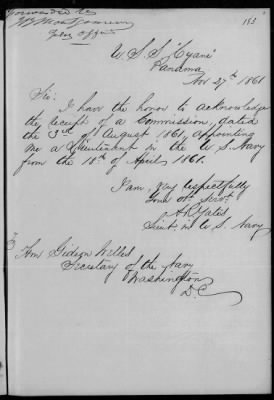 Forwarded by
J B Montgomery
Flag Officer
153
U. S. S. "Cyane"
Panama
Nov 27th 1861
Sir:
I have the honor to acknowledge
the receipt of a Commission, dated
the 3rd of August 1861, appointing
me a Lieutenant in the U S Navy
from the 18th of April 1861.
I am, Very Respectfully
Your Obt Servt
A R Yates
Lieut. in U. S. Navy
Hon Gideon Welles
Secretary of the Navy
Washington
D. C.